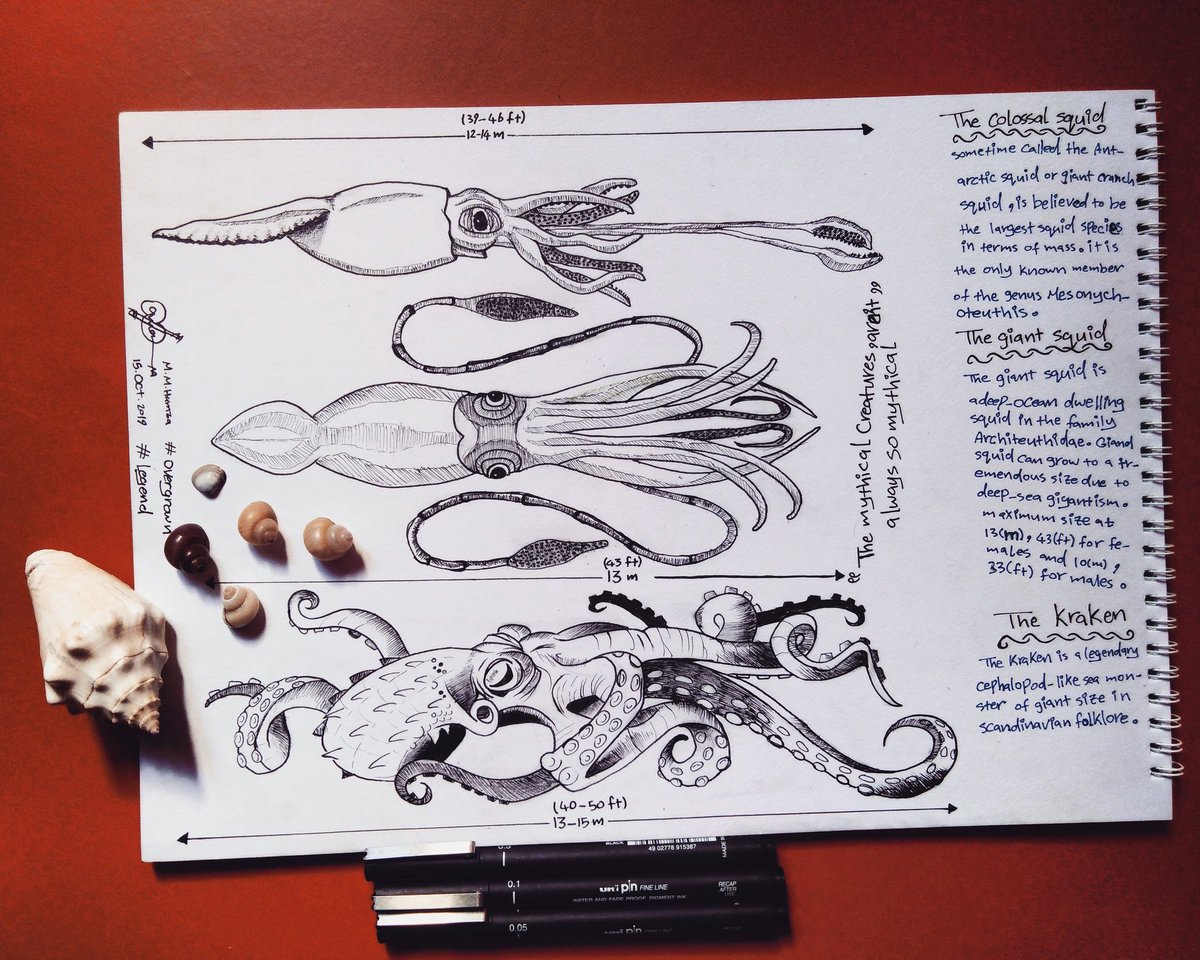 (39-46 ft)
12-14 m
The Colossal squid
sometime called the Ant-
arctic squid or giant cranch
squid, is believed to be
the largest squid species
in terms of mass. it is
the only known member
of the genus Mesonych-
oteuthis.
The giant squid
The giant squid is
a deep-ocean dwelling
squid in the family
Architeuthidae. Giand
squid can grow to a tr-
emendous size due to
deep-sea gigantism.
maximum size at
13(m), 43(ft) for fe-
males and 10(m),
33(ft) for males.
The Kraken
The Kraken is a legendary
cephalopod-like sea mon-
ster of giant size in
scandinavian folklore.
"The mythical Creatures, aren't"
always so mythical
M.M.Humza #Overgrown
15.Oct.2019 #Legend
(43 ft)
13 m
(40-50 ft)
13-15 m
BLACK
49 02778 915387
MADE IN
0.1
uni pin FINE LINE
WATER AND FADE PROOF, PIGMENT INK
RECAP
AFTER
USE
0.05
uni pin FINE LINE